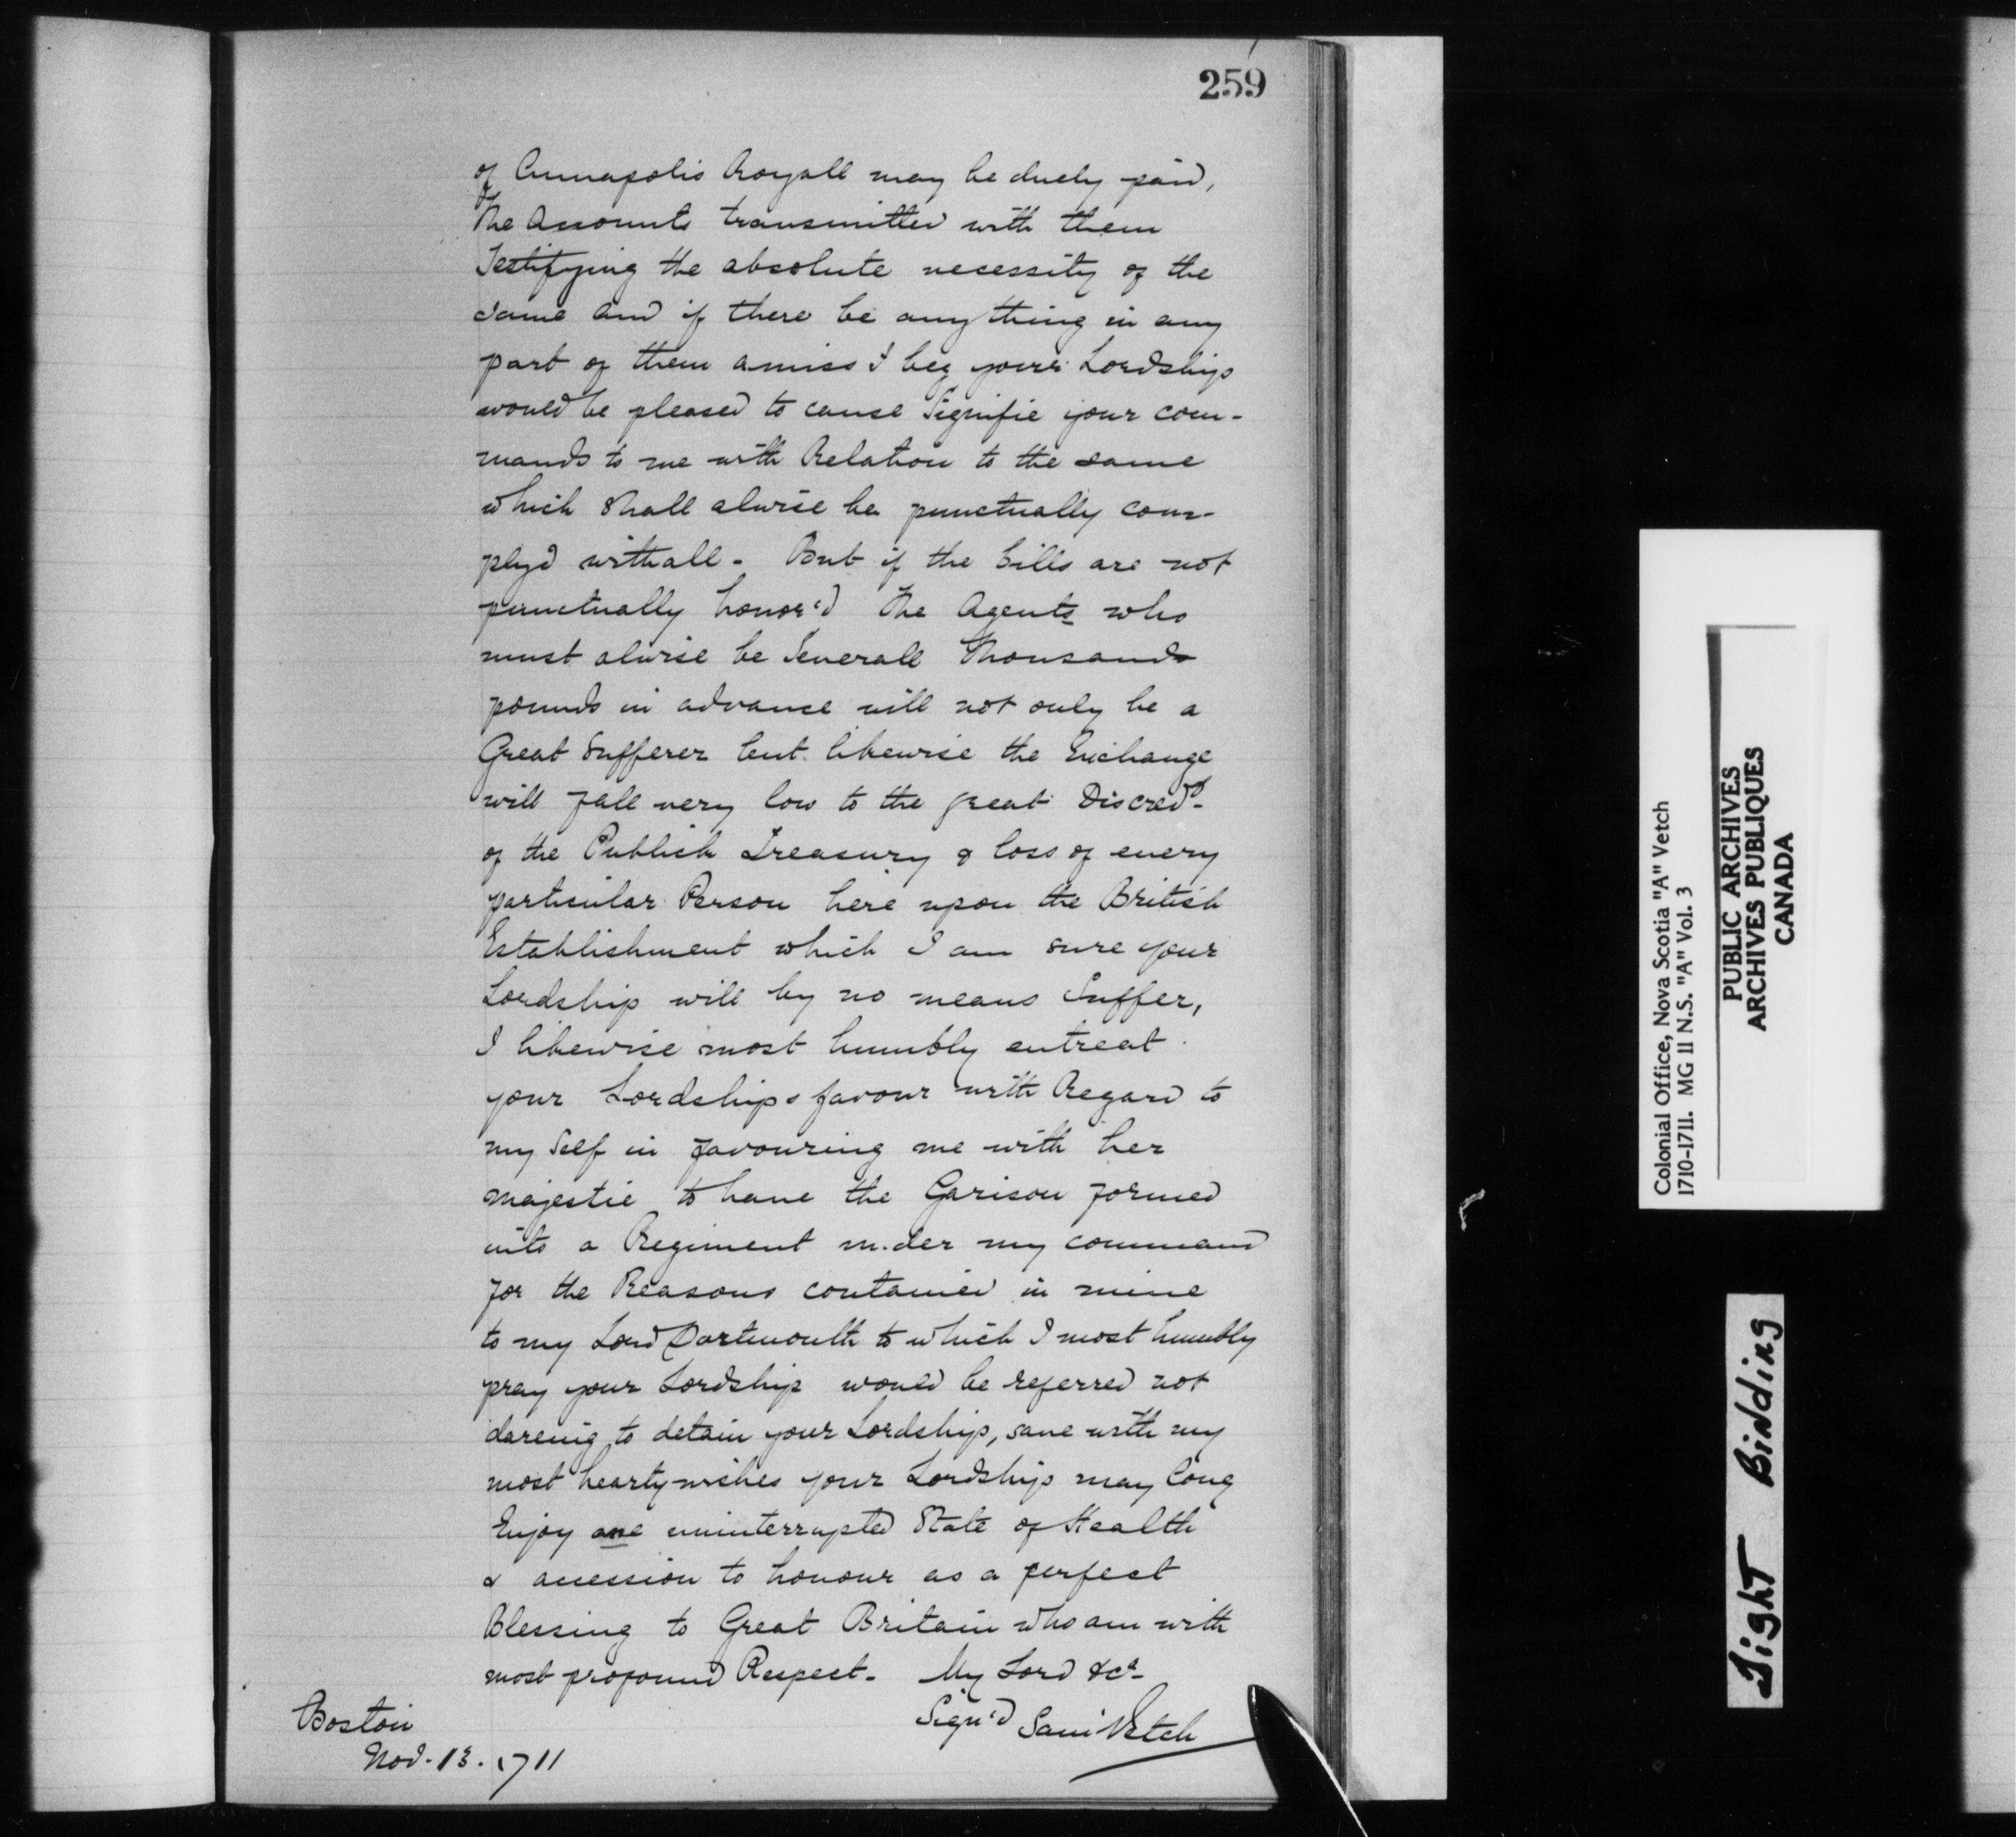 259
of Annapolis Royall may be duely paid,
The Accounts transmitted with them
Testifying the absolute necessity of the
Same And if there be any thing in any
part of them amiss I beg your Lordship
would be pleased to cause Signifie your com-
mands to me with Relation to the same
which shall alwise be punctually com-
plyd withall - But if the bills are not
punctually honor'd The Agents who
must alwise be Severall Thousands
pounds in advance will not only be a
Great Sufferer but likewise the Exchange
will fall very low to the great Discredt
of the Publick Treasury & loss of every
particular Person here upon the British
Establishment which I am sure your
Lordship will by no means Suffer,
I likewise most humbly entreat
your Lordships favour with Regard to
my Self in favouring me with her
majestie to have the Garison formed
into a Regiment under my command
for the Reasons contained in mine
to my Lord Dartmouth to which I most humbly
pray your Lordship would be referred not
dareing to detain your Lordship, save with my
most hearty wishes your Lordship may long
Enjoy ane uninterrupted State of Health
& accession to honour as a perfect
Blessing to Great Britain who am with
most profound Respect - My Lord &ca
Sign'd Saml Vetch
Boston
Nov. 13. 1711
Colonial Office, Nova Scotia "A" Vetch
1710-1711. MG 11 N.S. "A" Vol. 3
PUBLIC ARCHIVES
ARCHIVES PUBLIQUES
CANADA
Tight Binding